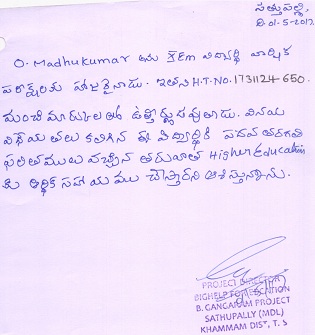 సత్తుపల్లి,
ది 01-5-2017.
O. Madhukumar అను కుర్రాడు విద్యార్థి వార్షిక
పరీక్షలకు హాజరైనాడు. ఇతని H.T.No. 1731124650.
మంచి మార్కులతో ఉత్తీర్ణుడవుతాడు. వినయ
విధేయతలు కలిగిన ఈ విద్యార్థికి పదవ తరగతి
ఫలితములు వచ్చిన తరువాత Higher Education
కు ఆర్థిక సహాయము చేస్తారని ఆశిస్తున్నాను.
PROJECT DIRECTOR
BIGHELP FOR EDUCATION
B. GANGARAM PROJECT
SATHUPALLY (MDL)
KHAMMAM DIST, T.S